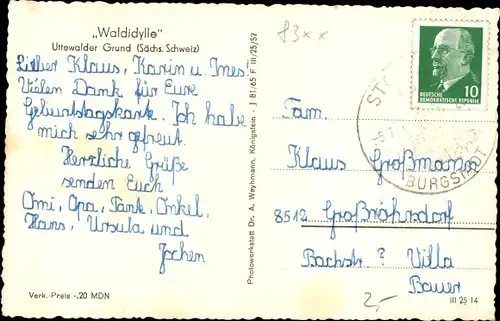 „Waldidylle"
Uttewalder Grund (Sächs. Schweiz)
Lieber Klaus, Karin u. Ines!
Vielen Dank für Eure
Geburtstagskarte. Ich habe
mich sehr gefreut.
Herzliche Grüße
senden Euch
Omi, Opa, Tante, Onkel,
Hans, Ursula und
Jochen
Verk.-Preis -,20 MDN
Photowerkstatt Dr. A. Weyhmann, Königstein - J 81/65 F III/25/52
83xx
DEUTSCHE
DEMOKRATISCHE REPUBLIK
10
BURGSTADT
Fam.
Klaus Großmann
8512 Großröhrsdorf
Bachstr. ? Villa
Bauer
2,-
III 25 14